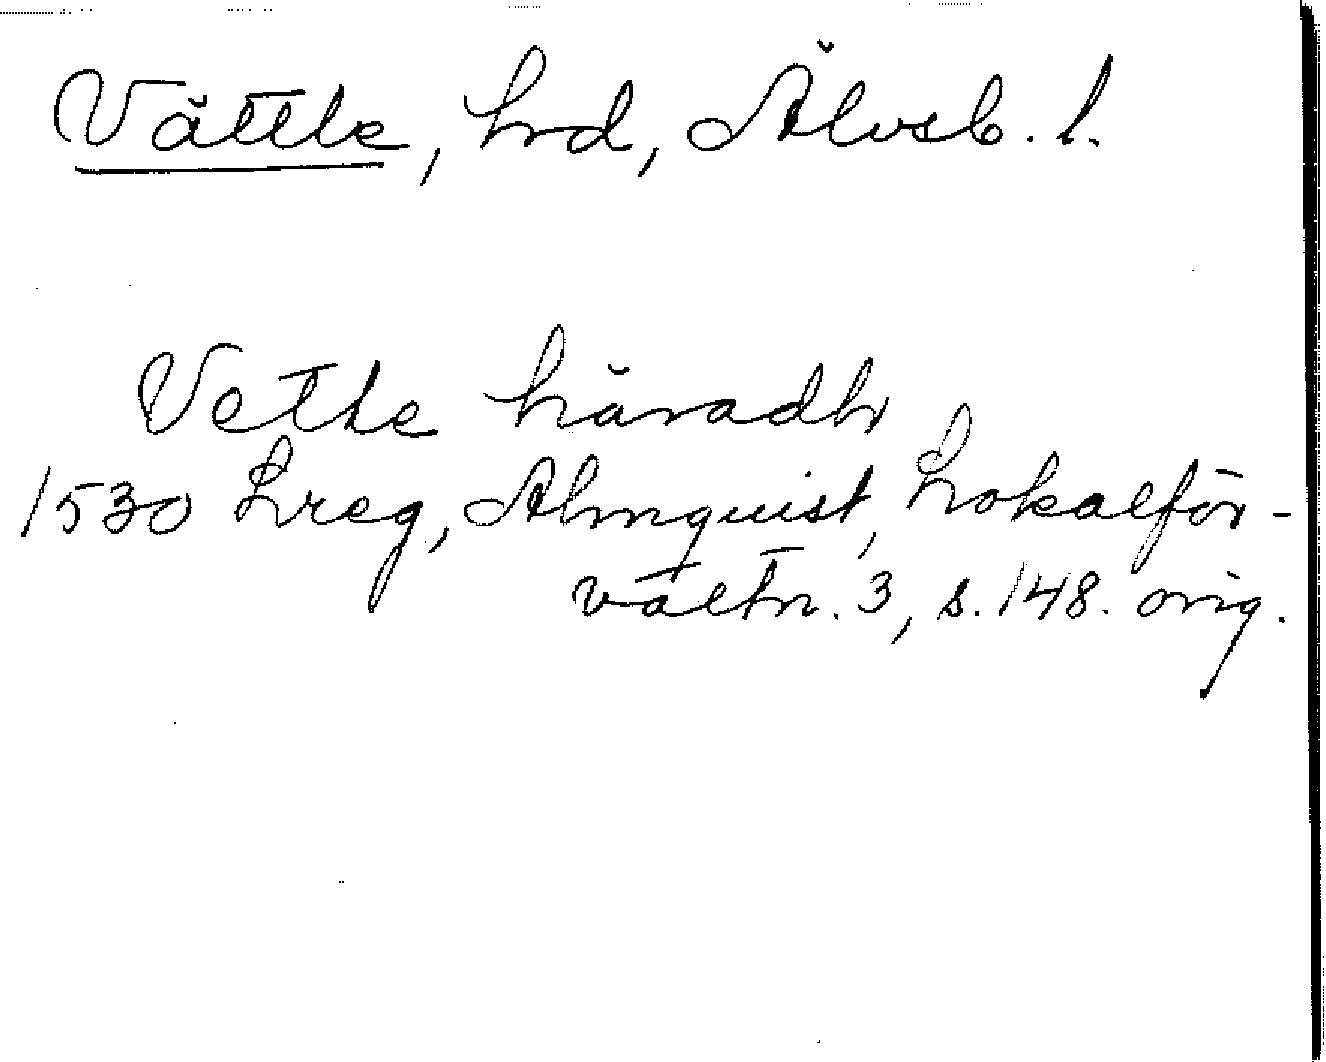 Vättle, hrd, Älvsb. l.
Vetthe häradh
1530 Lreg, Almquist, Lokalför-
valtn. 3, s. 148. orig.